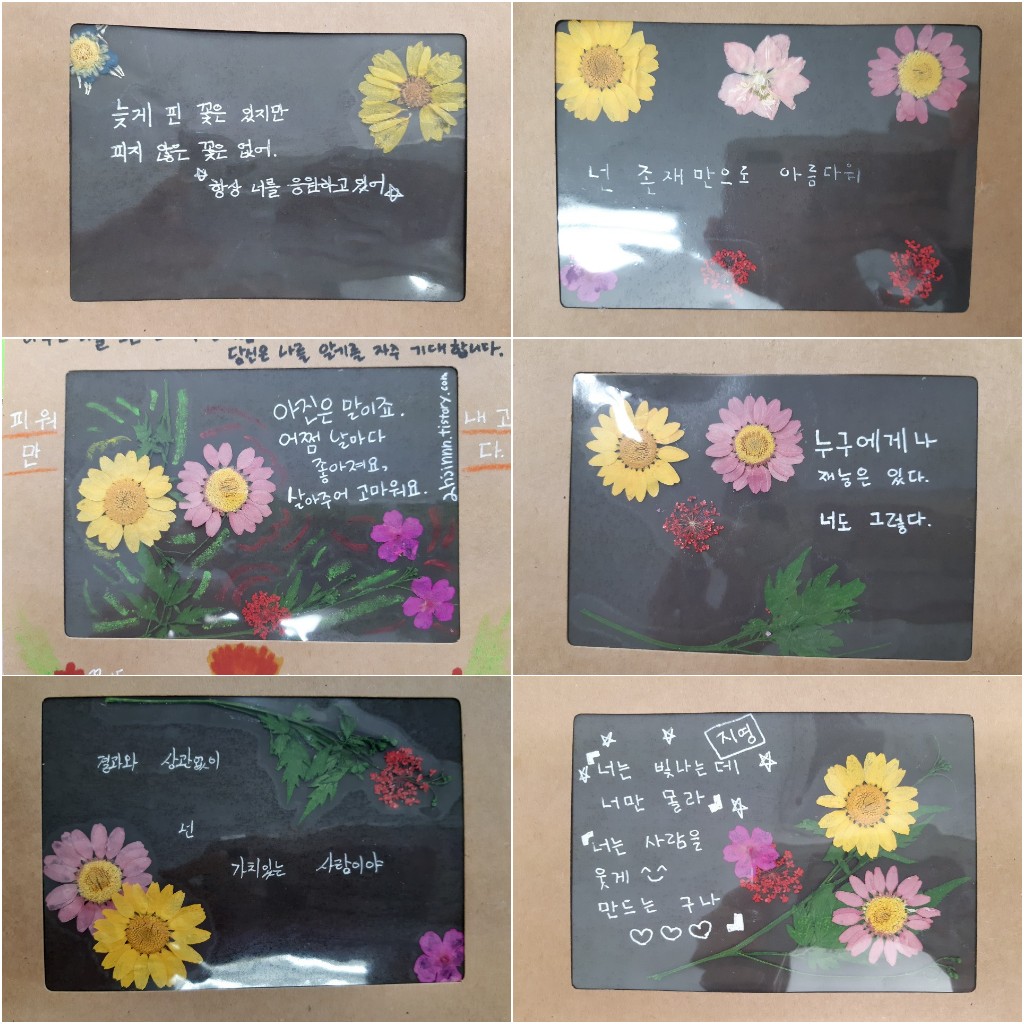 늦게 핀 꽃은 있지만
피지 않은 꽃은 없어.
항상 너를 응원하고 있어
넌 존재만으로 아름다워
당신은 나를 알기를 자주 기대합니다.
피워
만
내고
다.
야진은 말이죠.
어쩜 날마다
좋아져요,
살아주어 고마워요.
누구에게나
재능은 있다.
너도 그렇다.
결과와 상관없이
넌
가치있는 사람이야
지영
너는 빛나는데
너만 몰라
너는 사람을
웃게
만드는 구나